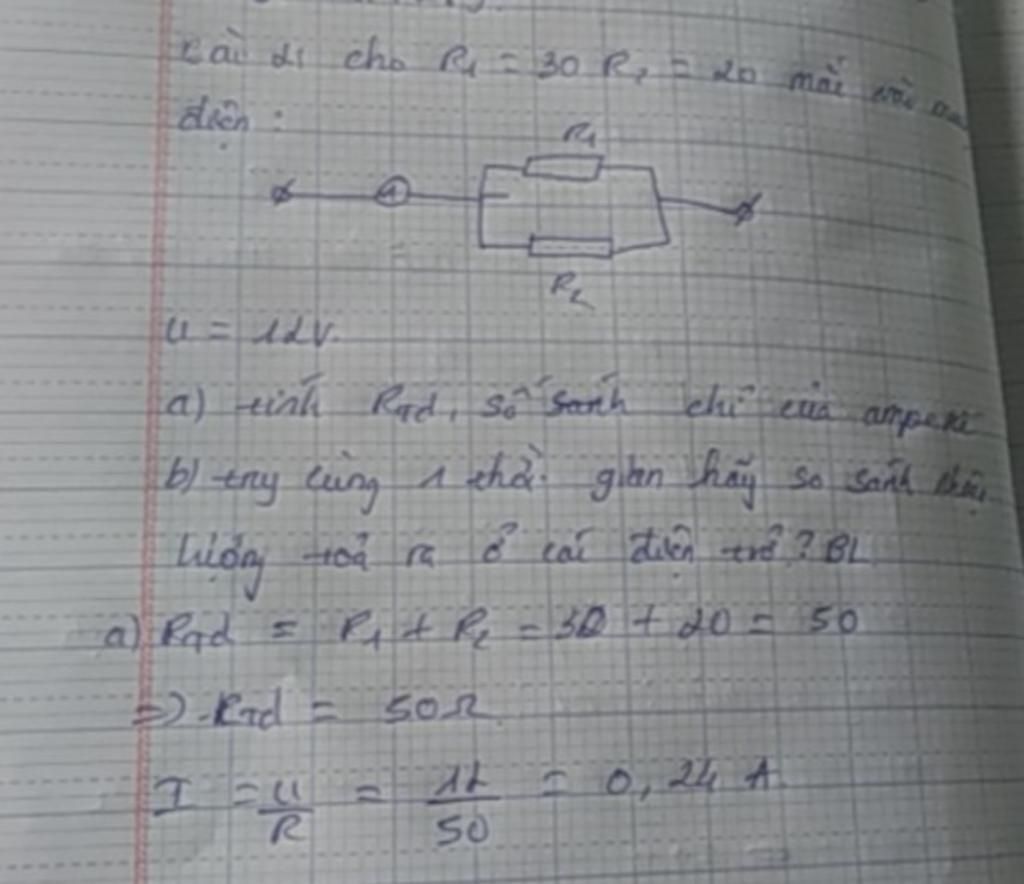 cho R1 = 30 R2 = 20 mắc
điện :
R1
A
R2
U = 12V.
a) tính Rtđ, số sánh chỉ của ampe
b) cùng 1 thời gian hãy so sánh
lượng toả ra ở các điện trở? BL
a) Rtđ = R1 + R2 = 30 + 20 = 50
=> Rtđ = 50Ω
I = U/R = 12/50 = 0,24 A